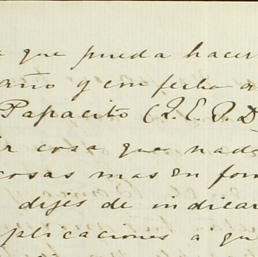 que pueda hacer
año y con fecha
Papacito (Q. E. P. D
cosa que nada
cosas mas en for
dejes de indicar
plicaciones a qu